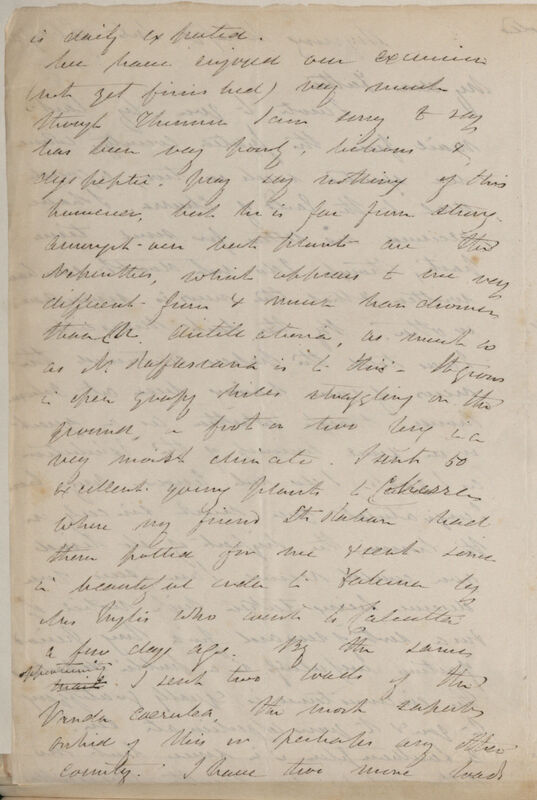 is daily expected.
We have enjoyed our excursion
(not yet finished) very much
though Thomson I am sorry to say
has been very poorly, bilious &
dyspeptic, pray say nothing of this
however, but he is far from strong.
Amongst our best plants are the
Nepenthes, which appears to me very
different from & much handsomer
than N. distillatoria, as much so
as N. Rafflesiana is to this - It grows
in open grassy hills straggling on the
ground, a foot or two long in a
very moist climate. I sent 50
excellent young plants to Churra
where my friend Dr. Raban had
them potted for me & sent some
in beautiful order to Falconer by
Mrs Inglis who went to Calcutta
a few days ago. By the same
opportunity mail I sent two loads of the
Vanda caerulea, the most superb
orchid of this or perhaps any other
country. I have two more loads